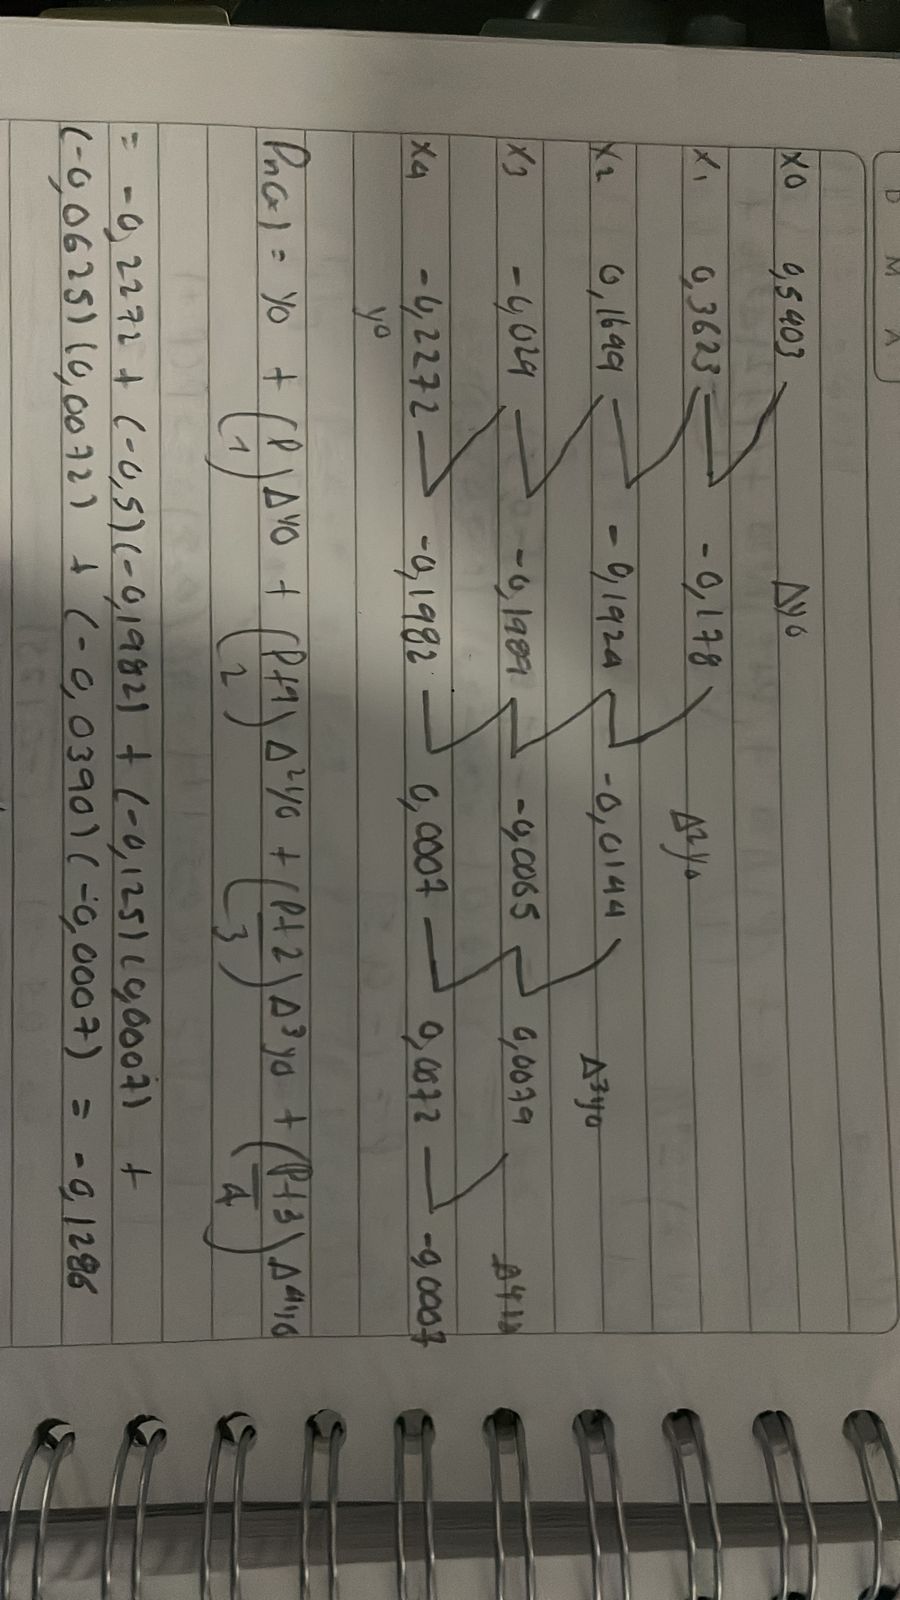 D M A
x0 0,5403 Δy0
x1 0,3623 -0,178 Δ²y0
x2 0,1699 -0,1924 -0,0144 Δ³y0
x3 -0,029 -0,1989 -0,0065 0,0079 Δ4y0
x4 -0,2272 -0,1982 0,0007 0,0072 -0,0007
y0
Pn(x) = y0 + (P/1) Δy0 + (P+1/2) Δ²y0 + (P+2/3) Δ³y0 + (P+3/4) Δ⁴y0
= -0,2272 + (-0,5)(-0,1982) + (-0,125)(0,0007) +
(-0,0625)(0,0072) + (-0,0390)(-0,0007) = -0,1286